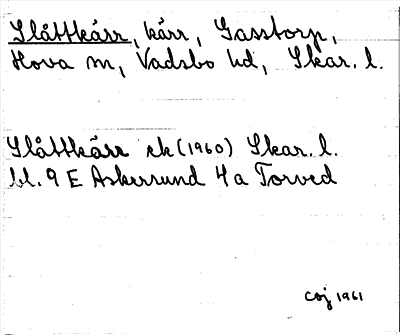 Slåttkärr, kärr, Gasstorp,
Hova sn, Vadsbo hd, Skar. l.
Slåttkärr ek (1960) Skar. l.
bl. 9 E Askersund 4 a Torved
CGJ 1961